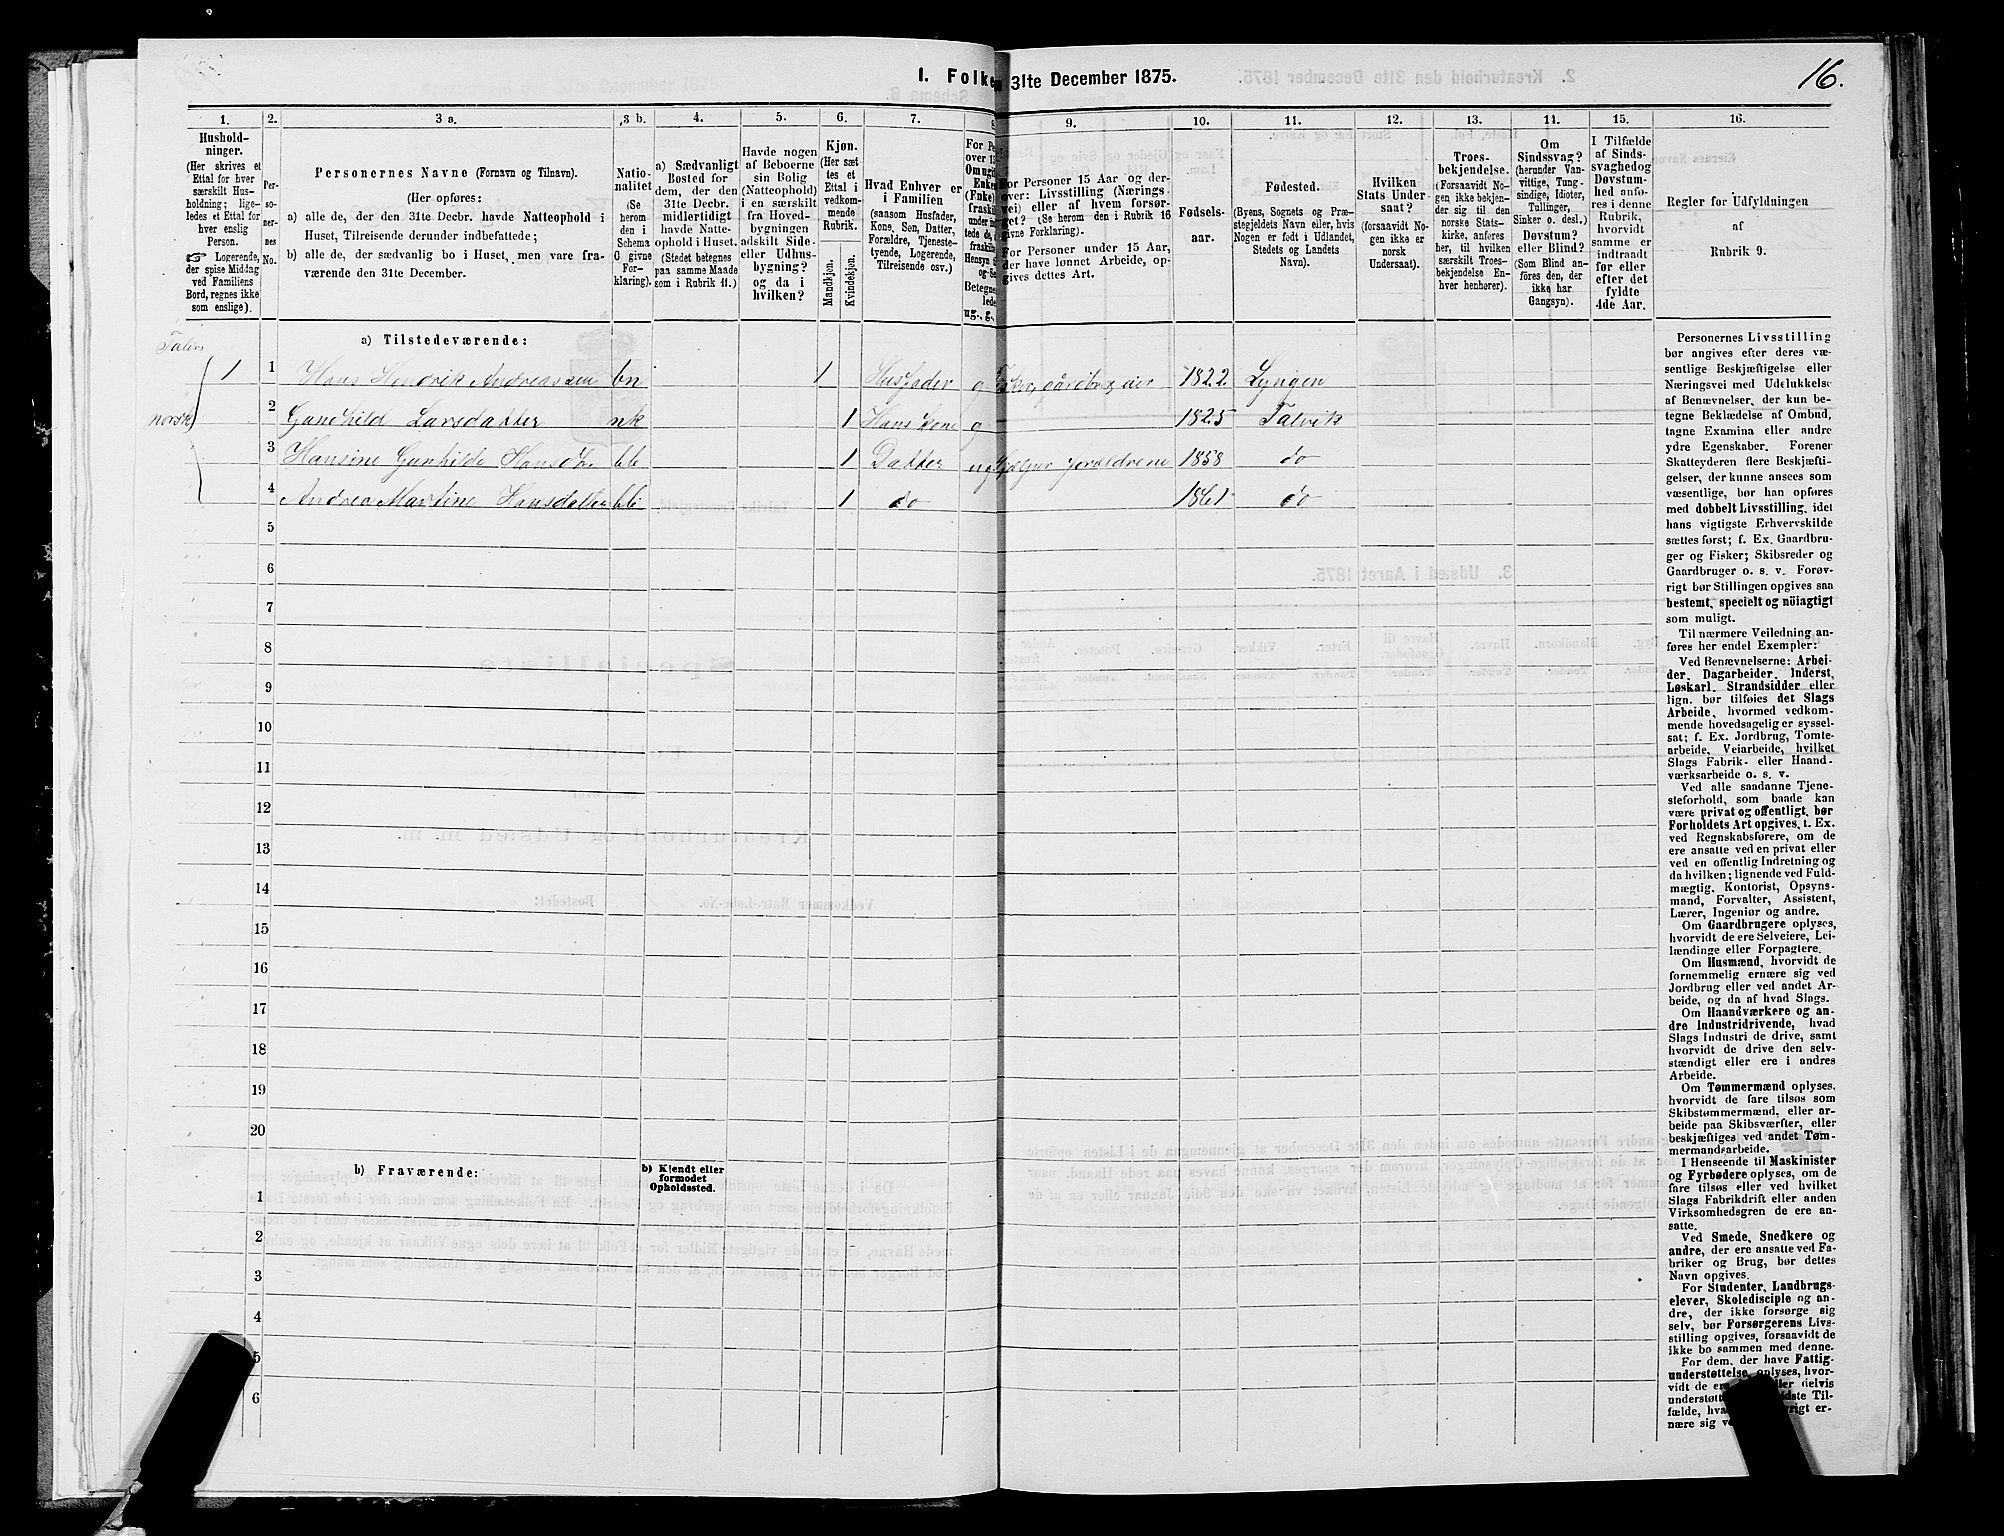 I. Folke 31te December 1875.
16.
1.
Hushold-
ninger.
(Her skrives et
Ettal for hver
særskilt Hus-
holdning; lige-
ledes et Ettal for
hver enslig
Person.
Logerende,
der spise Middag
ved Familiens
Bord, regnes ikke
som enslige).
2.
Per-
so-
ner-
nes
No.
3 a.
Personernes Navne (Fornavn og Tilnavn).
(Her opføres:
a) alle de, der den 31te Decbr. havde Natteophold i
Huset, Tilreisende derunder indbefattede;
b) alle de, der sædvanlig bo i Huset, men vare fra-
værende den 31te December.
3 b.
Natio-
nalitet
(Se
herom
den i
Schema
C givne
For-
klaring).
4.
a) Sædvanligt
Bosted for
dem, der den
31te Decbr.
midlertidigt
havde Natte-
ophold i Huset.
(Stedet betegnes
paa samme Maade
som i Rubrik 11.)
5.
Havde nogen
af Beboerne
sin Bolig
(Natteophold)
i en særskilt
fra Hoved-
bygningen
adskilt Side-
eller Udhus-
bygning?
og da i
hvilken?
6.
Kjøn.
(Her sæt
tes et
Ettal i
vedkom-
mende
Rubrik.
Mandkjøn.
Kvindekjøn.
7.
Hvad Enhver er
i Familien
(saasom Husfader,
Kone, Søn, Datter,
Forældre, Tjeneste-
tyende, Logerende,
Tilreisende osv.)
8
For Pe
over 1
Om ugi
Enke
(Enke)
fraski
under in
tede de,
fraskin
Hensyn
og Se
Betegne
lede
ug., g.,
9.
For Personer 15 Aar og der-
over: Livsstilling (Nærings-
vei) eller af hvem forsør-
get? (Se herom den i Rubrik 16
givne Forklaring.)
For Personer under 15 Aar,
der have lønnet Arbeide, op-
gives dettes Art.
10.
Fødsels-
aar.
11.
Fødested.
(Byens, Sognets og Præ-
stegjeldets Navn eller, hvis
Nogen er født i Udlandet,
Stedets og Landets
Navn).
12.
Hvilken
Stats Under-
saat?
(forsaavidt No-
gen ikke er
norsk
Undersaat).
13.
Troes-
bekjendelse.
(Forsaavidt No-
gen ikke bekjen-
der sig til den
norske Stats-
kirke, anføres
her, til hvilken
særskilt Troes-
bekjendelse En-
hver henhører).
11.
Om
Sindssvag?
(herunder Van-
vittige, Tung-
sindige, Idioter,
Tullinger,
Sinker o. desl.)
Døvstum?
eller Blind?
(Som Blind an-
føres den, der
ikke har
Gangsyn).
15.
I Tilfælde
af Sinds-
svaghed og
Døvstum-
hed anfø-
res i denne
Rubrik,
hvorvidt
samme er
indtraadt
før eller
efter det
fyldte
4de Aar.
16.
Regler for Udfyldningen
af
Rubrik 9.
a) Tilstedeværende:
1 1 Hans Hendrik Andreassen bn 1 Husfader g gårdbr, eier 1822 Lyngen
norsk
2 Gunhild Larsdatter nk 1 Hans Kone g 1825 Talvik
3 Hansine Gunhilde Hansd. bb 1 Datter ug Hjelper foreldrene 1858 do
4 Andrea Martine Hansdatter bb 1 do 1861 do
5
6
7
8
9
10
11
12
13
14
15
16
17
18
19
20
b) Fraværende:
b) Kjendt eller
formodet
Opholdssted.
1
2
3
4
5
6
Personernes Livsstilling
bør angives efter deres væ-
sentlige Beskjæftigelse eller
Næringsvei med Udelukkelse
af Benævnelser, der kun be-
tegne Beklædelse af Ombud,
tagne Examina eller andre
ydre Egenskaber. Forener
Skatteyderen flere Beskjæfti-
gelser, der kunne ansees som
væsentlige, bør han opføres
med dobbelt Livsstilling, idet
hans vigtigste Erhvervskilde
sættes først; f. Ex. Gaardbru-
ger og Fisker; Skibsreder og
Gaardbruger o. s. v. Forøv-
rigt bør Stillingen opgives saa
bestemt, specielt og nöiagtigt
som muligt.
Til nærmere Veiledning an-
føres her endel Exempler:
Ved Benævnelserne: Arbei-
der, Dagarbeider, Inderst,
Løskarl, Strandsidder eller
lign. bør tilføies det Slags
Arbeide, hvormed vedkom-
mende hovedsagelig er syssel-
sat; f. Ex. Jordbrug, Tomte-
arbeide, Veiarbeide, hvilket
Slags Fabrik- eller Haand-
værksarbeide o. s. v.
Ved alle saadanne Tjene-
steforhold, som baade kan
være privat og offentligt, bør
Forholdets Art opgives, t. Ex.
ved Regnskabsførere, om de
ere ansatte ved en privat eller
ved en offentlig Indretning og
da hvilken; lignende ved Fuld-
mægtig, Kontorist, Opsyns-
mand, Forvalter, Assistent,
Lærer, Ingeniør og andre.
Om Gaardbrugere oplyses,
hvorvidt de ere Selveiere, Lei-
lændinge eller Forpagtere.
Om Husmænd, hvorvidt de
fornemmelig ernære sig ved
Jordbrug eller ved andet Ar-
beide, og da af hvad Slags.
Om Haandværkere og an-
dre Industridrivende, hvad
Slags Industri de drive, samt
hvorvidt de drive den selv-
stændigt eller ere i andres
Arbeide.
Om Tømmermænd oplyses,
hvorvidt de fare tilsøs som
Skibstømmermænd, eller ar-
beide paa Skibsværfter, eller
beskjæftiges ved andet Tøm-
mermandsarbeide.
I Henseende til Maskinister
og Fyrbødere oplyses, om de
fare tilsøs eller ved hvilket
Slags Fabrikdrift eller anden
Virksomhedsgren de ere an-
satte.
Ved Smede, Snedkere og
andre, der ere ansatte ved Fa-
briker og Brug, bør dettes
Navn opgives.
For Studenter, Landbrugs-
elever, Skoledisciple og an-
dre, der ikke forsørge sig
selv, bør Forsørgerens Livs-
stilling opgives, forsaavidt de
ikke bo sammen med denne.
For dem, der have Fattig-
understøttelse, oplyses, hvor-
vidt de er ller delvis
understøtt idste Til-
fælde, hva rigt er-
nære sig v